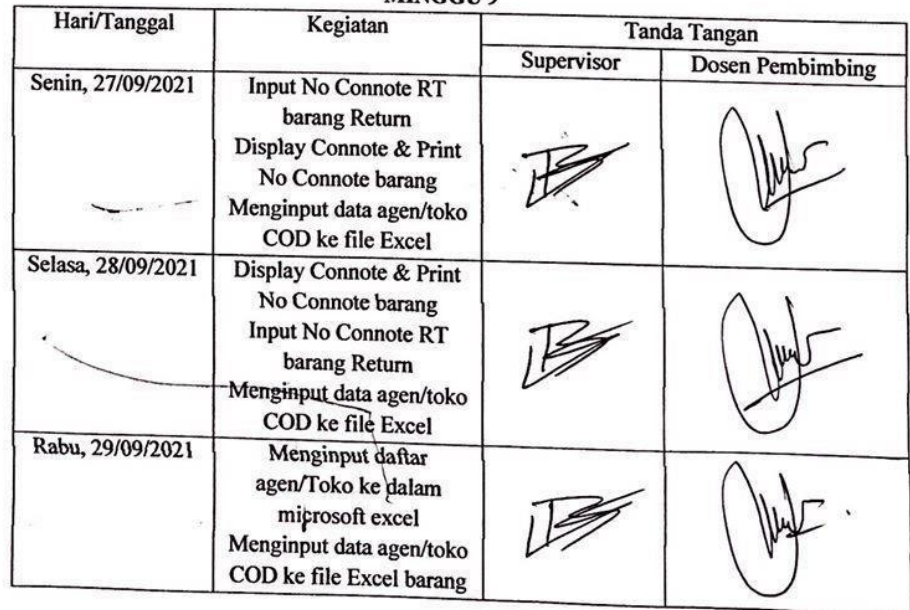 MINGGU 9
Hari/Tanggal
Kegiatan
Tanda Tangan
Supervisor
Dosen Pembimbing
Senin, 27/09/2021
Input No Connote RT
barang Return
Display Connote & Print
No Connote barang
Menginput data agen/toko
COD ke file Excel
Selasa, 28/09/2021
Display Connote & Print
No Connote barang
Input No Connote RT
barang Return
Menginput data agen/toko
COD ke file Excel
Rabu, 29/09/2021
Menginput daftar
agen/Toko ke dalam
microsoft excel
Menginput data agen/toko
COD ke file Excel barang